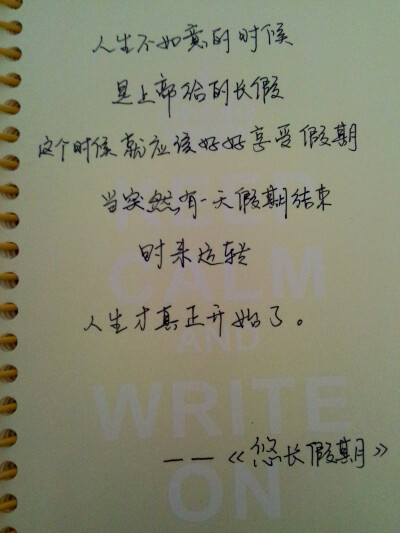 人生不如意的时候
是上部给的长假
这个时候就应该好好享受假期
当突然有一天假期结束
时来运转
人生才真正开始了。
——《悠长假期》
KEEP
CALM
AND
WRITE
ON